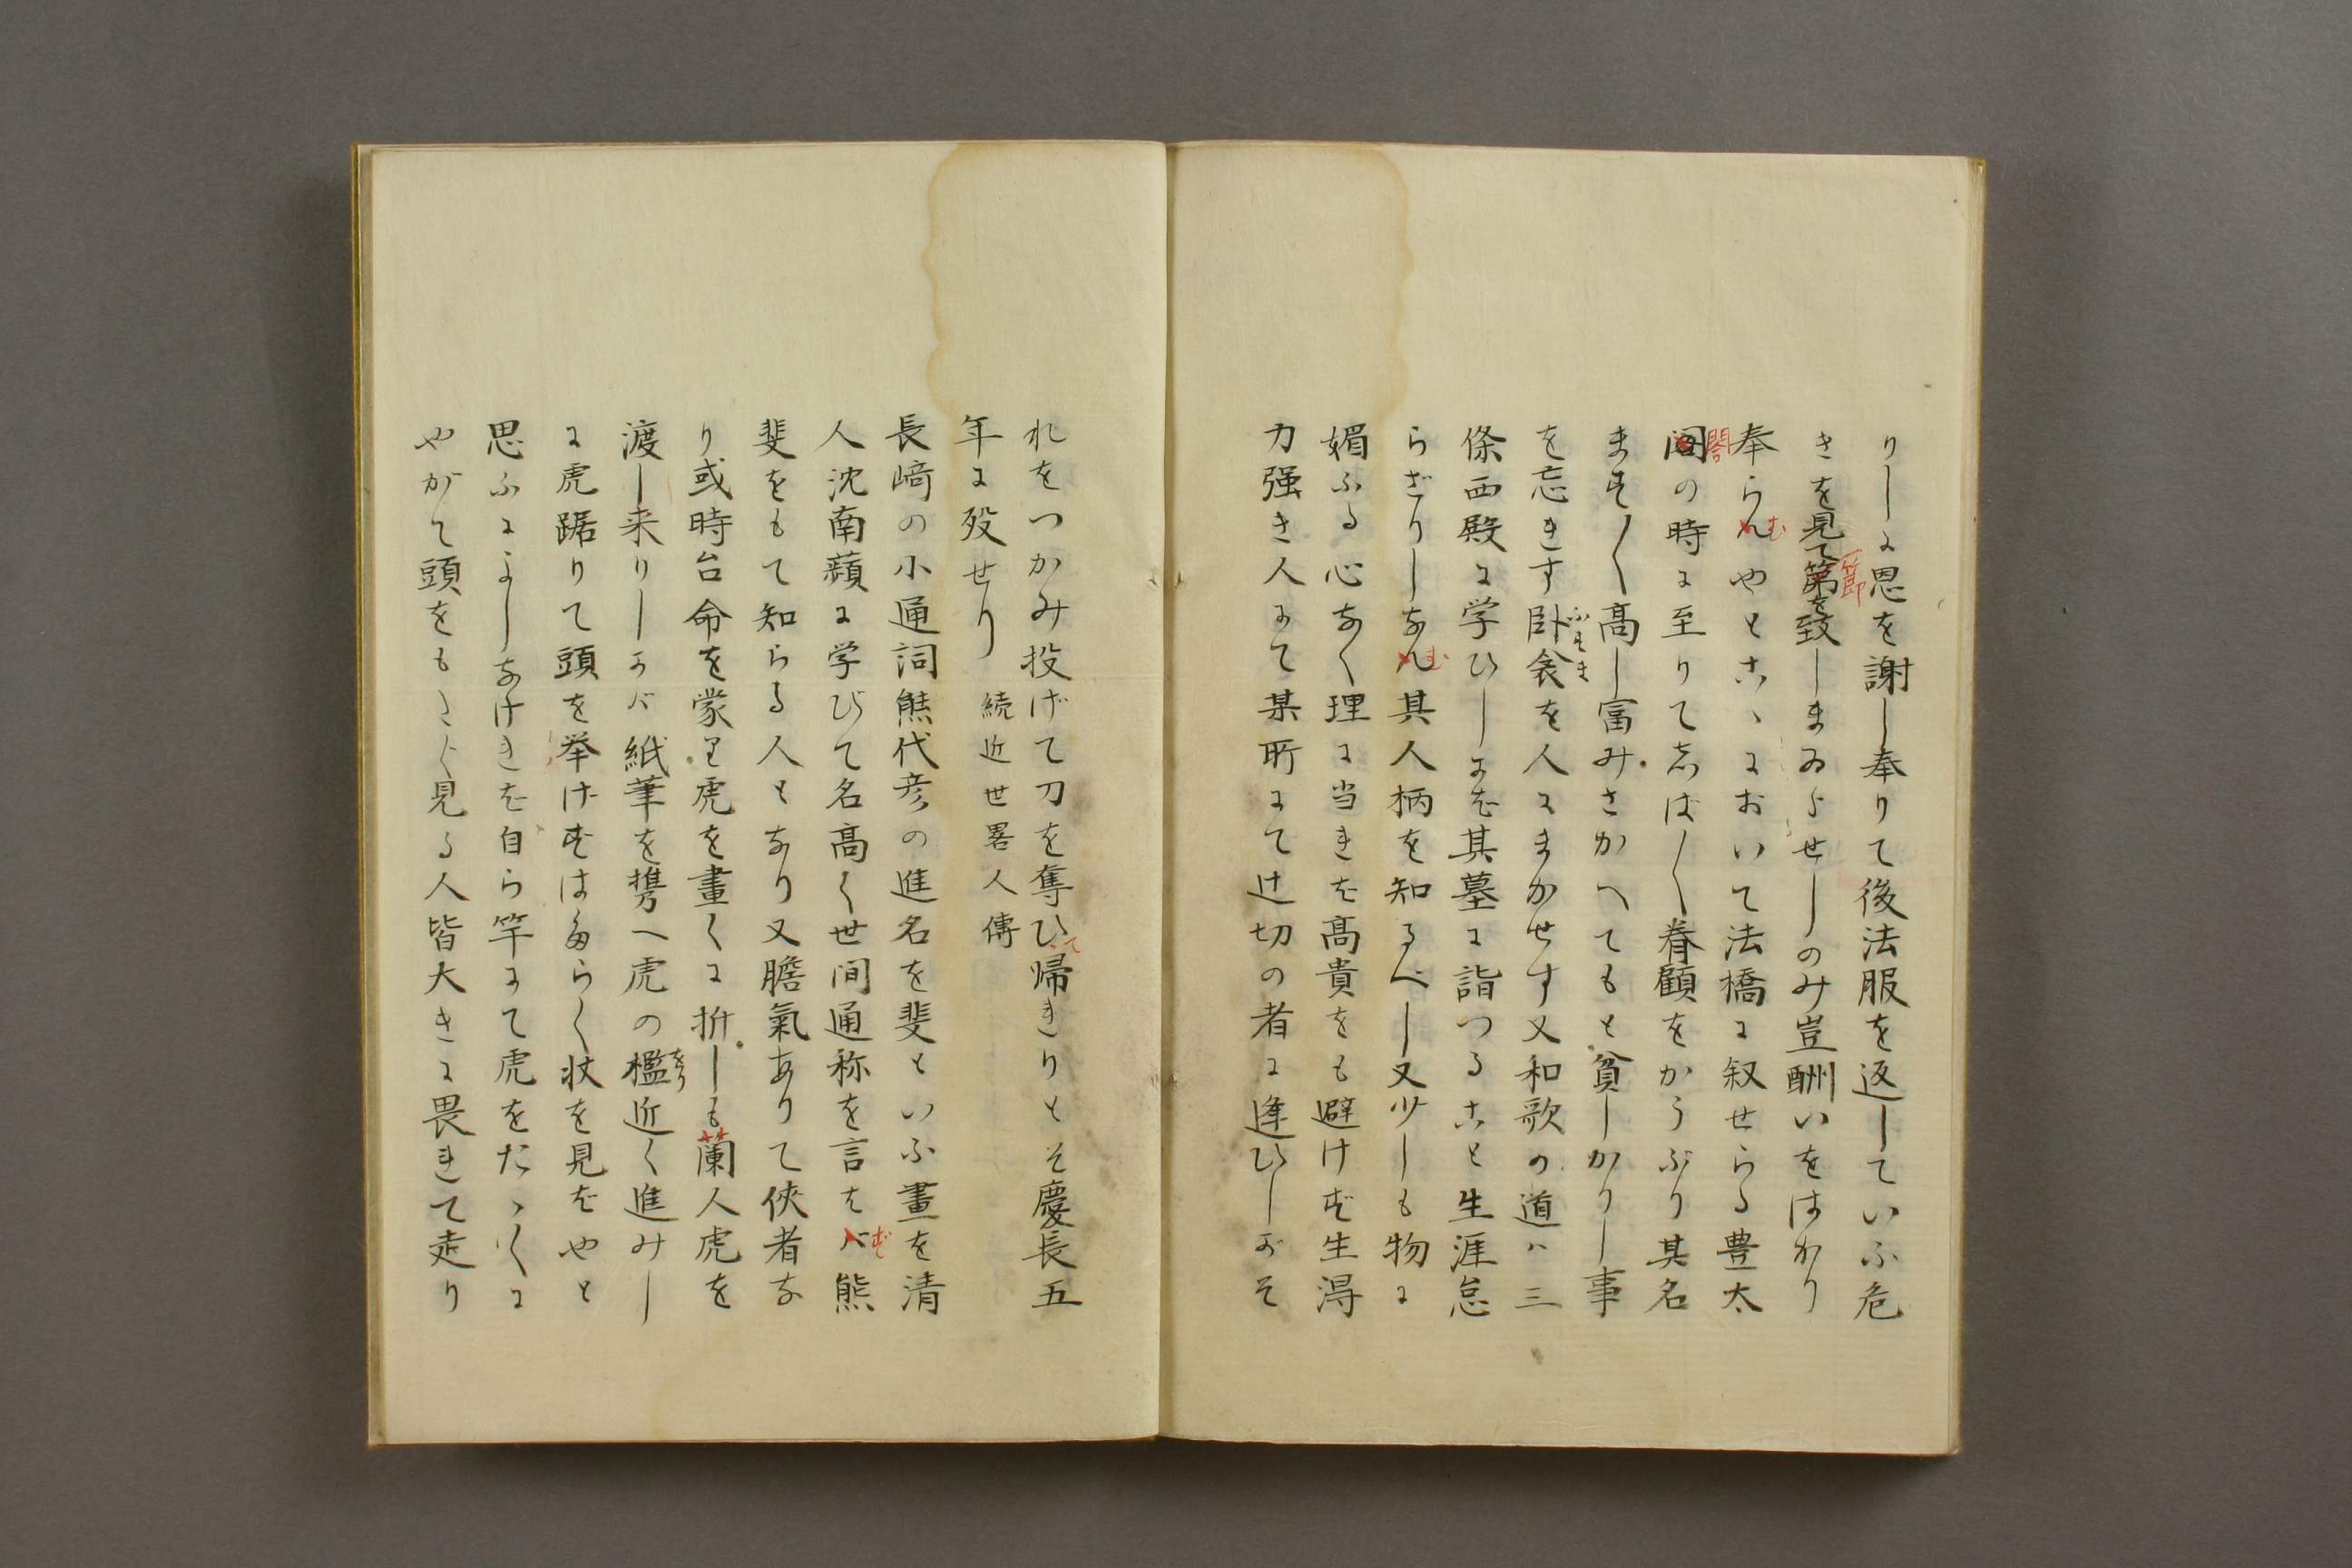 りしに恩を謝し奉りて後法服を返していふ危
きを見て第を致しまゐらせしのみ豈酬いをはかり
節
奉らんやとこゝにおいて法橋に叙せらる豊太
む
閤の時に至りてしば〳〵眷顧をかうぶり其名
閤
ます〳〵高し富みさかへてもと貧しかりし事
を忘きす卧衾を人にまかせす又和歌の道ハ三
ふすま
條西殿に学ひしかは其墓に詣つること生涯怠
らざりしなん其人柄を知るべし又少しも物に
む
媚ふる心なく理に当きは高貴をも避けず生淂
力強き人にて某所にて辻切の者に逢ひしがそ
れをつかみ投げて刀を奪ひ帰きりとそ慶長五
て
年に歿せり 続近世畧人傳
長﨑の小通詞熊代彦の進名を斐といふ畫を清
人沈南蘋に学びて名高く世间通称を言はバ熊
ず
斐をもて知らる人となり又膽氣ありて侠者な
り或時台命を蒙り虎を畫くに折しも蘭人虎を
渡し来りしかバ紙筆を携へ虎の檻近く進みし
をり
に虎踞りて頭を挙けすはたらく状を見はやと
思ふによしなけきは自ら竿にて虎をたゝくに
やがて頭をもたく見る人皆大きに畏きて走り